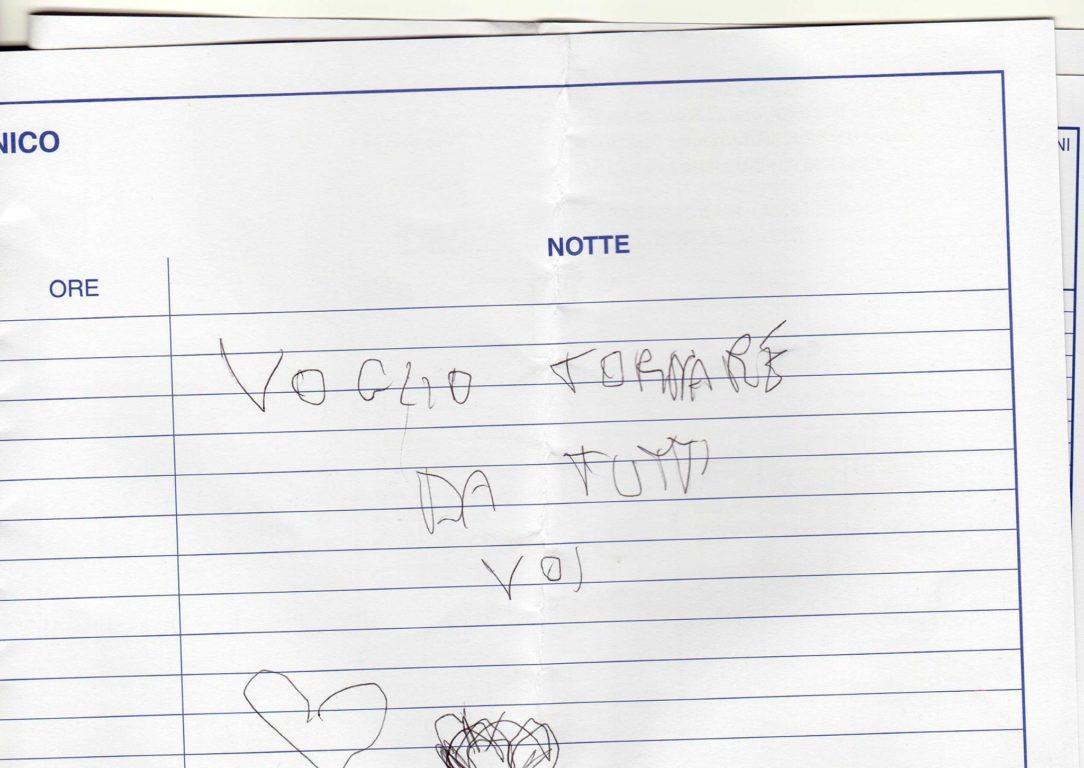 NICO
NI
NOTTE
ORE
VOGLIO TORNARE
DA TUTTI
VOI